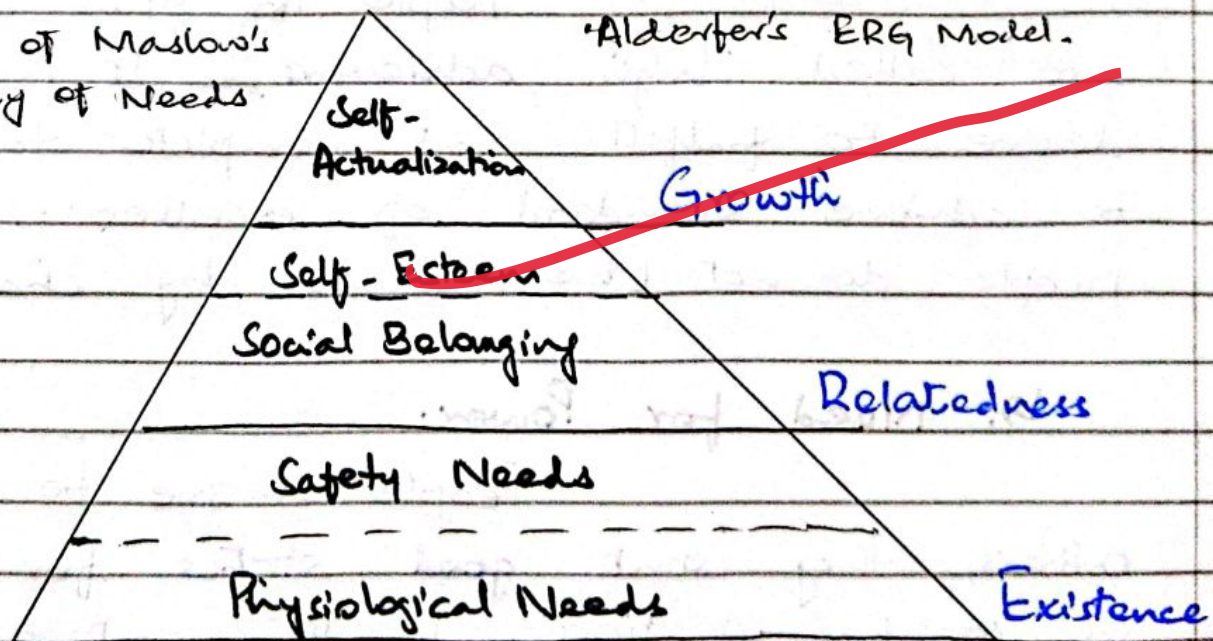 of Maslow's
Alderfer's ERG Model.
y of Needs
Self-
Actualization
Growth
Self-Esteem
Social Belonging
Relatedness
Safety Needs
Physiological Needs
Existence